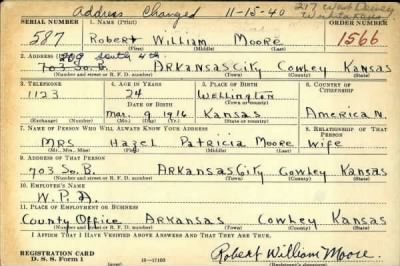 Address Changed 11-15-40 217 West Dewey
SERIAL NUMBER 1. NAME (Print) ORDER NUMBER
587 Robert William Moore 1566
(First) (Middle) (Last)
2. ADDRESS (Print) 209 South 4th.
703 So. B. Arkansas City Cowley Kansas
(Number and street or R. F. D. number) (Town) (County) (State)
3. TELEPHONE 4. AGE IN YEARS 5. PLACE OF BIRTH 6. COUNTRY OF CITIZENSHIP
1123 24 Wellington
DATE OF BIRTH (Town or county)
Mar. 9 1916 Kansas American
(Mo.) (Day) (Yr.) (State or country)
7. NAME OF PERSON WHO WILL ALWAYS KNOW YOUR ADDRESS 8. RELATIONSHIP OF THAT PERSON
Mrs Hazel Patricia Moore Wife
(Mr., Mrs., Miss) (First) (Middle) (Last)
9. ADDRESS OF THAT PERSON
703 So. B. Arkansas City Cowley Kansas
(Number and street or R. F. D. number) (Town) (County) (State)
10. EMPLOYER'S NAME
W. P. A.
11. PLACE OF EMPLOYMENT OR BUSINESS
County Office Arkansas Cowley Kansas
(Number and street or R. F. D. number) (Town) (County) (State)
I AFFIRM THAT I HAVE VERIFIED ABOVE ANSWERS AND THAT THEY ARE TRUE.
REGISTRATION CARD
D. S. S. Form 1 16—17105 Robert William Moore.
(Registrant's signature)